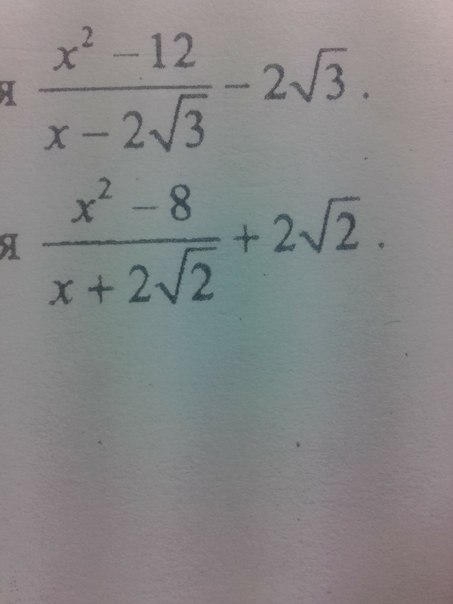 я (x² − 12)/(x − 2√3) − 2√3 .
я (x² − 8)/(x + 2√2) + 2√2 .